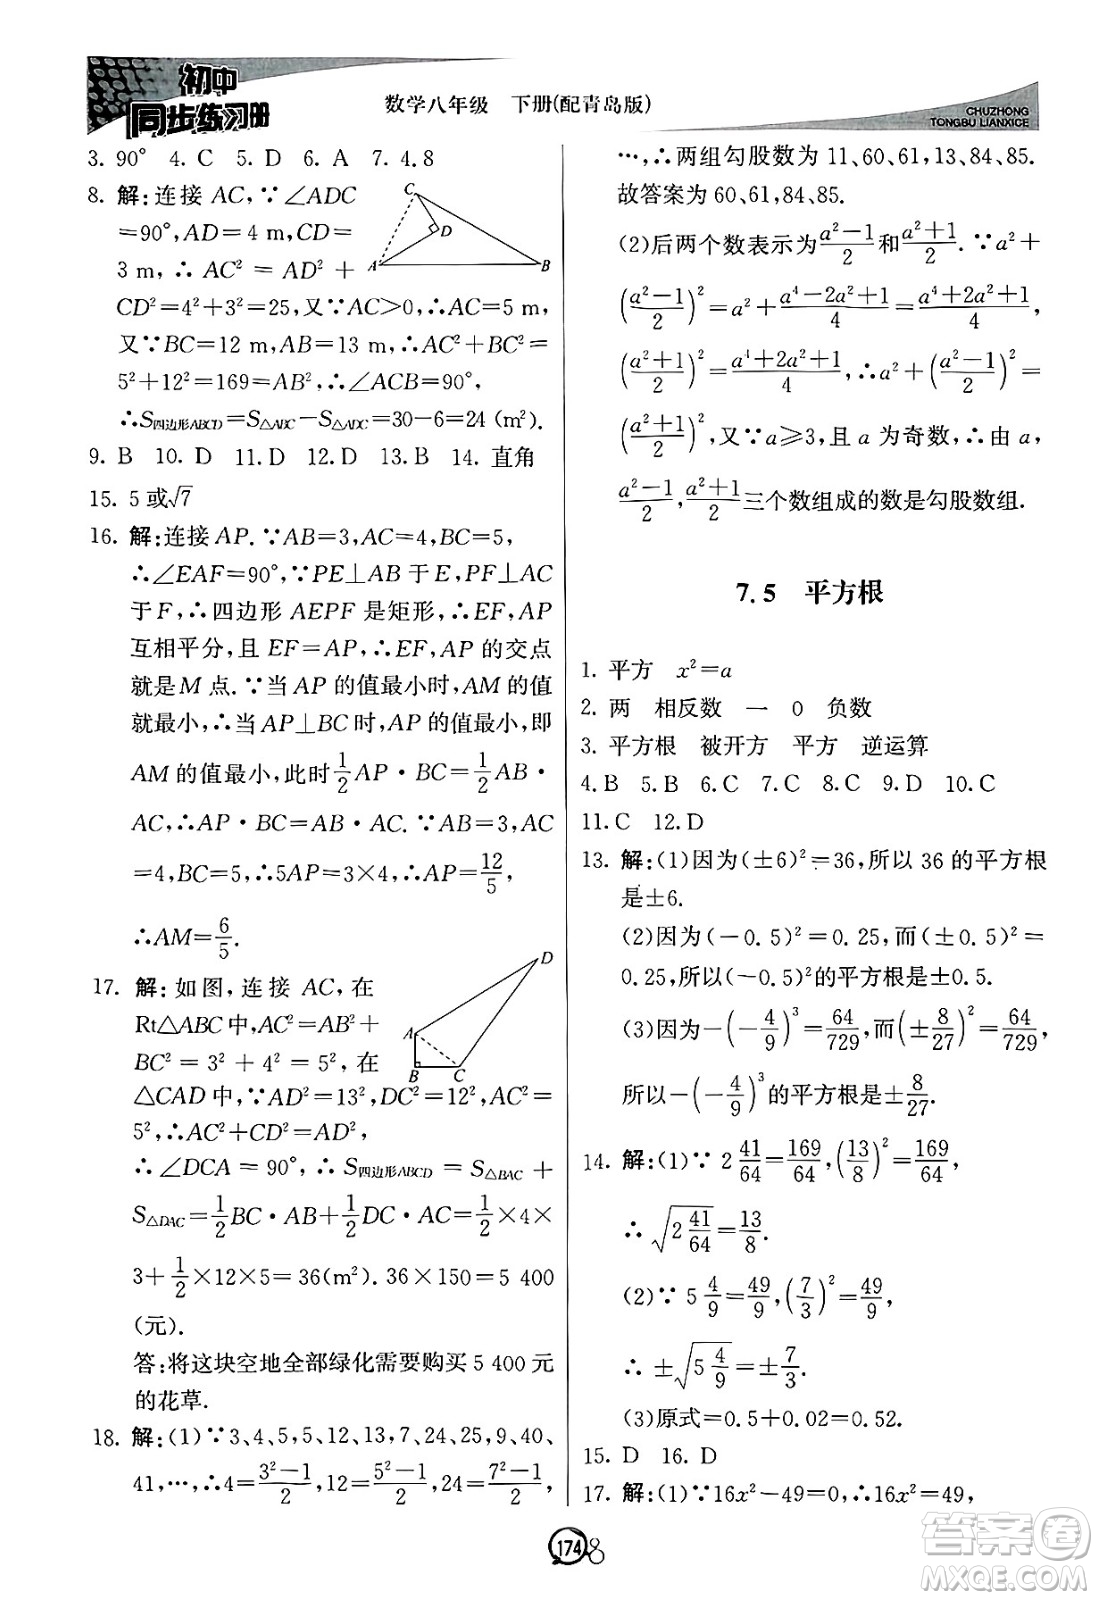 初中
同步练习册
数学八年级　下册(配青岛版)
CHUZHONG
TONGBU LIANXICE
3. 90°　4. C　5. D　6. A　7. 4.8
8. 解:连接 AC,∵∠ADC
=90°,AD=4 m,CD=
3 m,∴AC²=AD²+
CD²=4²+3²=25,又∵AC>0,∴AC=5 m,
又∵BC=12 m,AB=13 m,∴AC²+BC²=
5²+12²=169=AB²,∴∠ACB=90°,
∴S四边形ABCD=S△ABC-S△ADC=30-6=24 (m²).
C
D
A
B
9. B　10. D　11. D　12. D　13. B　14. 直角
15. 5 或√7
16. 解:连接 AP.∵AB=3,AC=4,BC=5,
∴∠EAF=90°,∵PE⊥AB 于 E,PF⊥AC
于 F,∴四边形 AEPF 是矩形,∴EF,AP
互相平分,且 EF=AP,∴EF,AP 的交点
就是M 点.∵当 AP 的值最小时,AM 的值
就最小,∴当 AP⊥BC 时,AP 的值最小,即
AM 的值最小,此时1/2 AP·BC=1/2 AB·
AC,∴AP·BC=AB·AC.∵AB=3,AC
=4,BC=5,∴5AP=3×4,∴AP=12/5,
∴AM=6/5.
17. 解:如图,连接 AC,在
Rt△ABC 中,AC²=AB²+
BC²=3²+4²=5²,在
△CAD 中,∵AD²=13²,DC²=12²,AC²=
5²,∴AC²+CD²=AD²,
∴∠DCA=90°,∴S四边形ABCD=S△BAC+
S△DAC=1/2 BC·AB+1/2 DC·AC=1/2×4×
3+1/2×12×5=36(m²).36×150=5 400
(元).
答:将这块空地全部绿化需要购买 5 400 元
的花草.
D
A
B
C
18. 解:(1)∵3,4,5,5,12,13,7,24,25,9,40,
41,…,∴4=(3²-1)/2,12=(5²-1)/2,24=(7²-1)/2,
…,∴两组勾股数为 11,60,61,13,84,85.
故答案为 60,61,84,85.
(2)后两个数表示为(a²-1)/2和(a²+1)/2.∵a²+
((a²-1)/2)²=a²+(a⁴-2a²+1)/4=(a⁴+2a²+1)/4,
((a²+1)/2)²=(a⁴+2a²+1)/4,∴a²+((a²-1)/2)²=
((a²+1)/2)²,又∵a≥3,且 a 为奇数,∴由 a,
(a²-1)/2,(a²+1)/2三个数组成的数是勾股数组.
7.5　平方根
1. 平方　x²=a
2. 两　相反数　一　0　负数
3. 平方根　被开方　平方　逆运算
4. B　5. B　6. C　7. C　8. C　9. D　10. C
11. C　12. D
13. 解:(1)因为(±6)²=36,所以 36 的平方根
是±6.
(2)因为(-0.5)²=0.25,而(±0.5)²=
0.25,所以(-0.5)²的平方根是±0.5.
(3)因为-(-4/9)³=64/729,而(±8/27)²=64/729,
所以-(-4/9)³的平方根是±8/27.
14. 解:(1)∵2 41/64=169/64,(13/8)²=169/64,
∴√(2 41/64)=13/8.
(2)∵5 4/9=49/9,(7/3)²=49/9,
∴±√(5 4/9)=±7/3.
(3)原式=0.5+0.02=0.52.
15. D　16. D
17. 解:(1)∵16x²-49=0,∴16x²=49,
174
答案圈
MXQE.COM